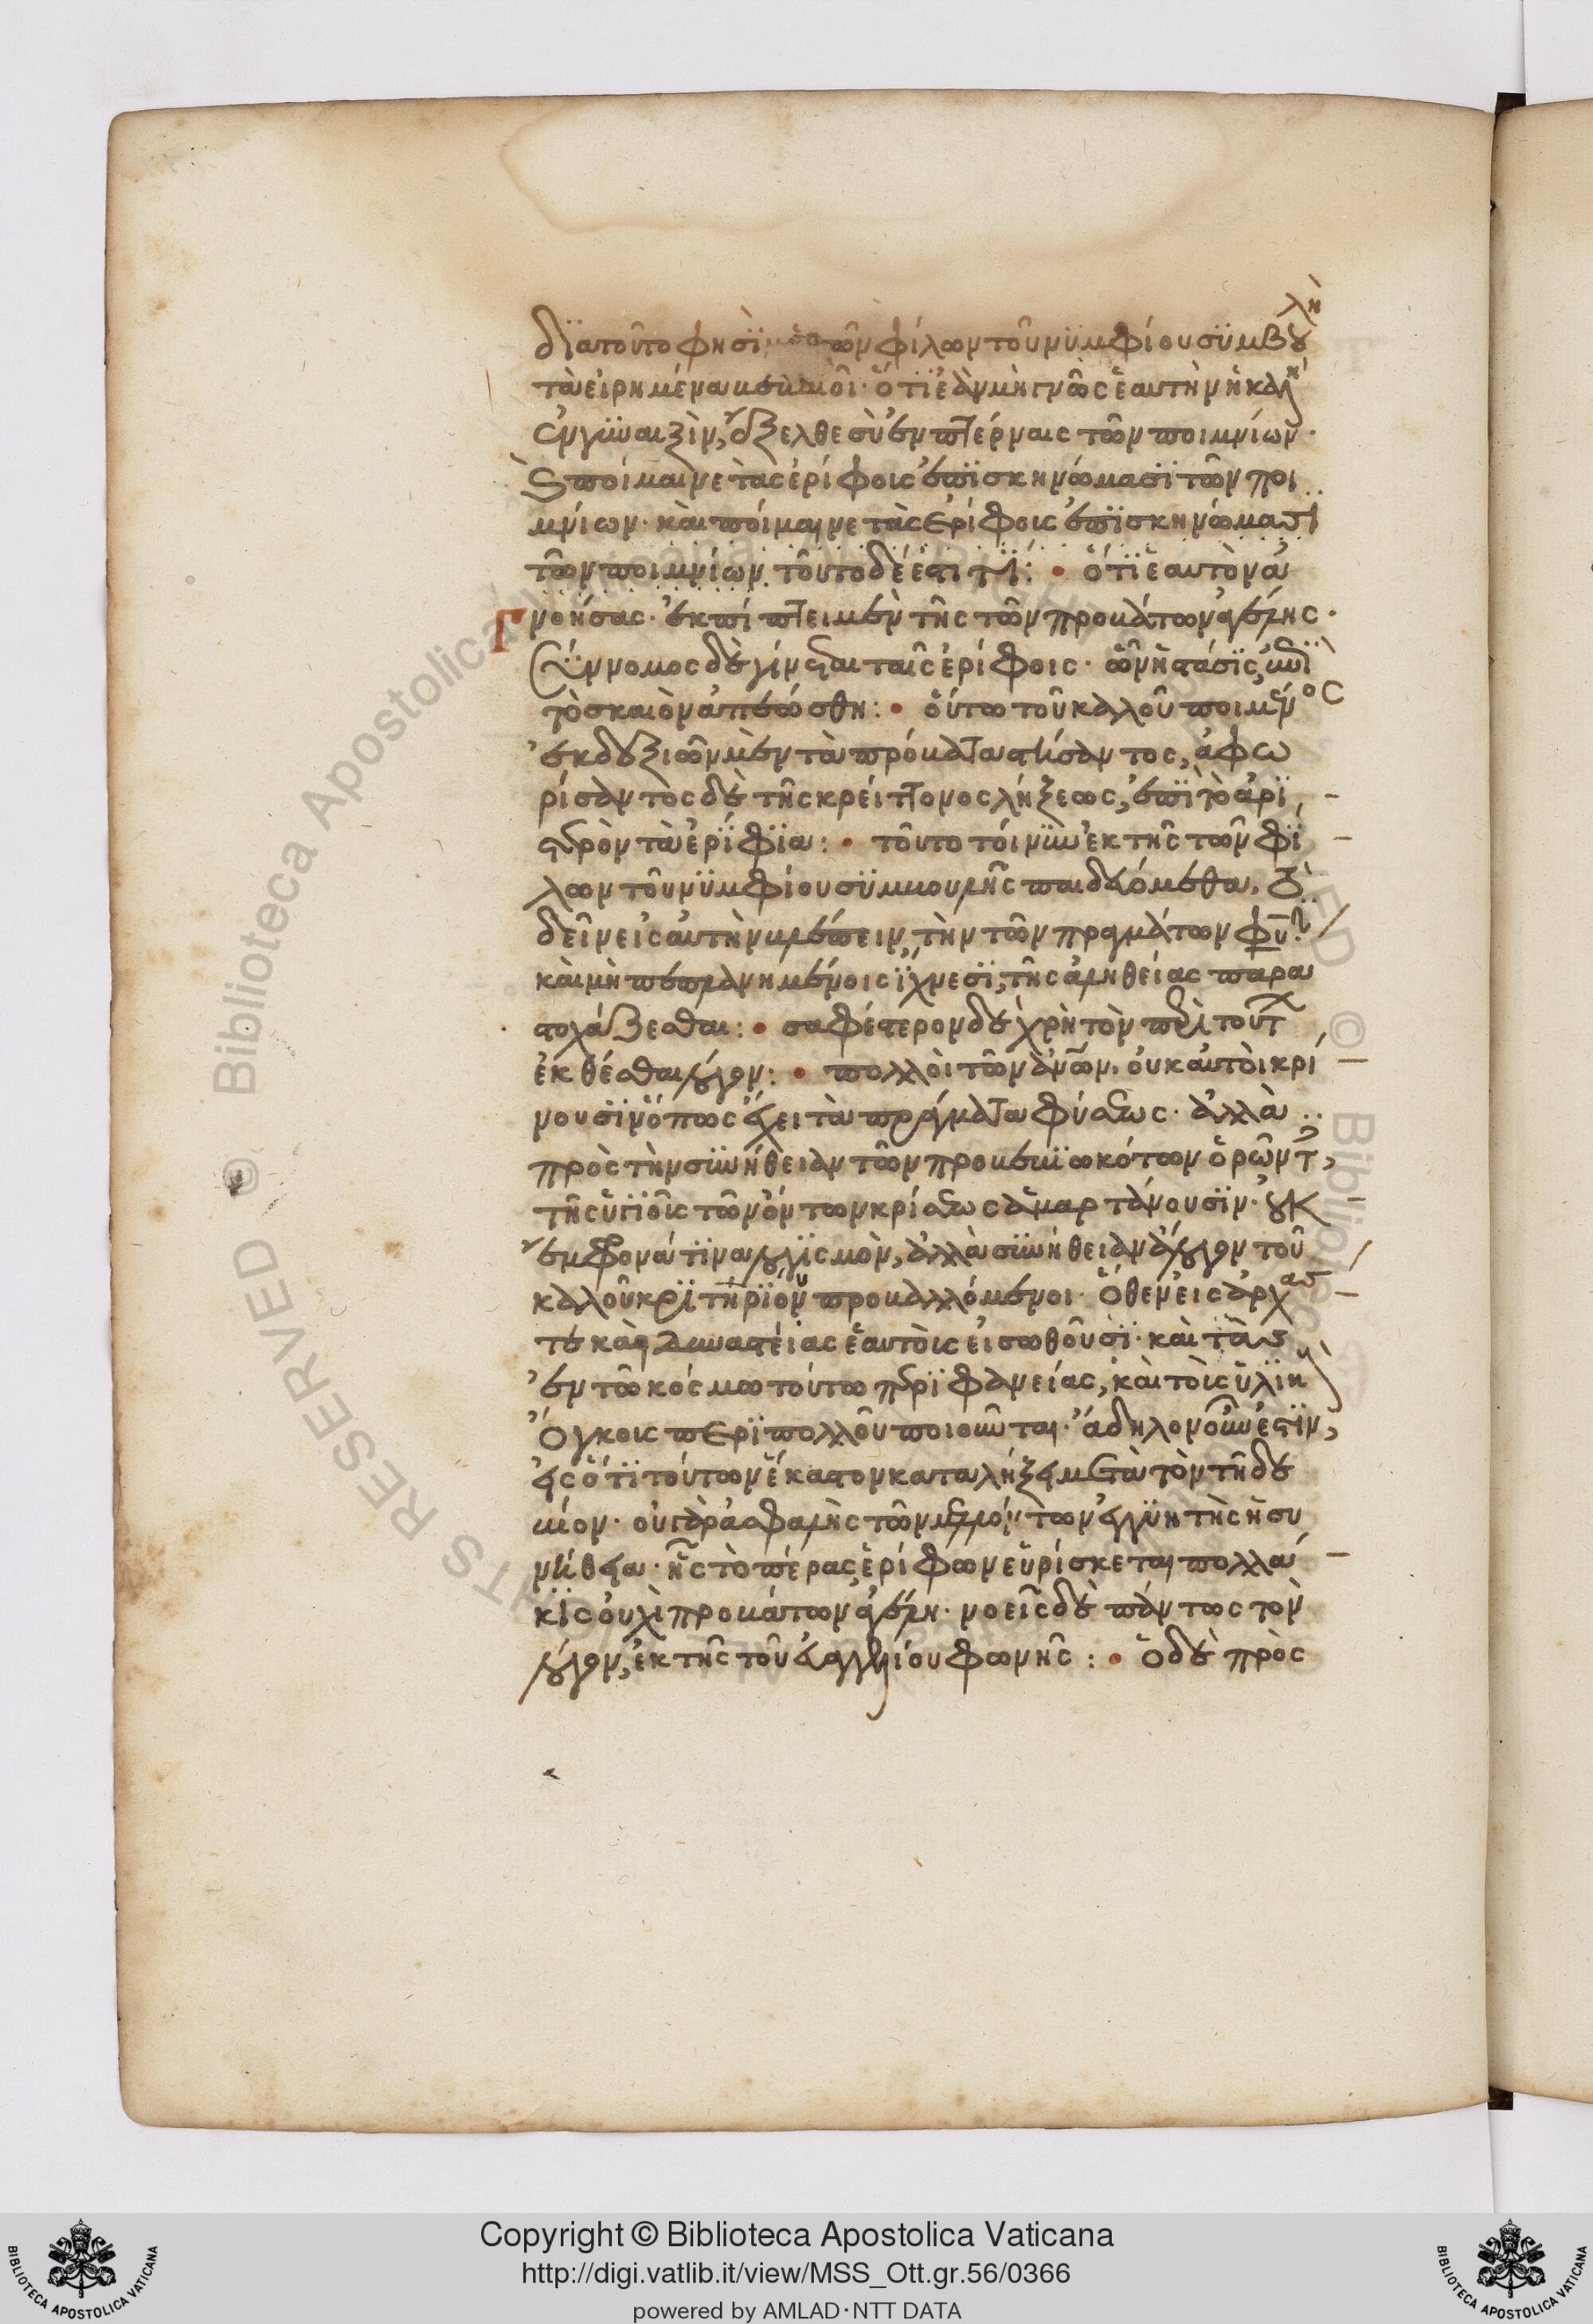 διατοῦτο φησὶ τῶν φίλων τοῦ νυμφίου συμβουλὴ
τὰ εἰρημένα ὅτι ἐὰν μὴ γνῶς ἑαυτὴν ἡ καλὴ
ἐν γυναιξὶν, ἔξελθε σὺ ἐν πτέρναις τῶν ποιμνίων·
ποίμαινε τὰς ἐρίφοις ἐπὶ σκηνώμασι τῶν ποι
μνίων· καὶ ποίμαινε τὰς ἐρίφοις ἐπὶ σκηνώμασι
τῶν ποιμνίων τοῦτο δέ ἐστι τί: • ὅτι ἑαυτὸν ἀ
γνοήσας· ἐκπίπτει μὲν τῆς τῶν προβάτων ἀγέλης·
Σύννομος δὲ γίνεται ταῖς ἐρίφοις· ὧν ἡ στάσις, ἐπὶ
τὸ σκαιὸν ἀπεώσθη: • οὕτω τοῦ καλοῦ ποιμένος
ἐκ δεξιῶν μὲν τὰ πρόβατα στήσαντος, ἀφω
ρίσαντος δὲ τῆς κρείττονος λήξεως, ἐπὶ τὸ ἀρι
στερὸν τὰ ἐρίφια: • τοῦτο τοίνυν ἐκ τῆς τῶν φί
λων τοῦ νυμφίου συμβουλῆς παιδευόμεθα, τὸ
δεῖν εἰς αὐτὴν βλέπειν, τὴν τῶν πραγμάτων φύσιν
καὶ μὴ πεπλανημένοις ἴχνεσι, τῆς ἀληθείας παρα
στοχάζεσθαι: • σαφέστερον δὲ χρὴ τὸν περὶ τούτων
ἐκθέσθαι λόγον: • πολλοὶ τῶν ἀνων, οὐκ αὐτοὶ κρί
νουσιν ὅπως ἔχει τὰ πράγματα φύσεως· ἀλλὰ
πρὸς τὴν συνήθειαν τῶν προβεβιωκότων ὁρῶντες,
τῆς ὑγιοῦς τῶν ὄντων κρίσεως ἁμαρτάνουσιν· οὐκ
ἔμφρονά τινα λογισμὸν, ἀλλὰ συνήθειαν ἄλογον τοῦ
καλοῦ κριτήριον προβαλλόμενοι· Ὅθεν εἰς ἀρχάς
τε καὶ δυναστείας ἑαυτοὺς εἰσωθοῦσι· καὶ τὰς
ἐν τῶ κόσμω τούτω περιφανείας, καὶ τοὺς ὑλικοὺς
Ὄγκους περὶ πολλοῦ ποιοῦνται· ἄδηλον οὖν ἐστιν,
εἰς ὅτι τούτων ἕκαστον καταλήξει μετὰ τὸν τῆδε
βίον· οὐ γὰρ ἀσφαλὴς τῶν μελλόντων ἐγγυητὴς ἡ συ
νήθεια· ἧς τὸ πέρας ἐρίφων εὑρίσκεται πολλά
κις οὐχὶ προβάτων ἀγέλη· νοεῖς δὲ πάντως τὸν
λόγον, ἐκ τῆς τοῦ εὐαγγελίου φωνῆς: • ὁ δὲ πρὸς
Copyright © Biblioteca Apostolica Vaticana
http://digi.vatlib.it/view/MSS_Ott.gr.56/0366
powered by AMLAD·NTT DATA